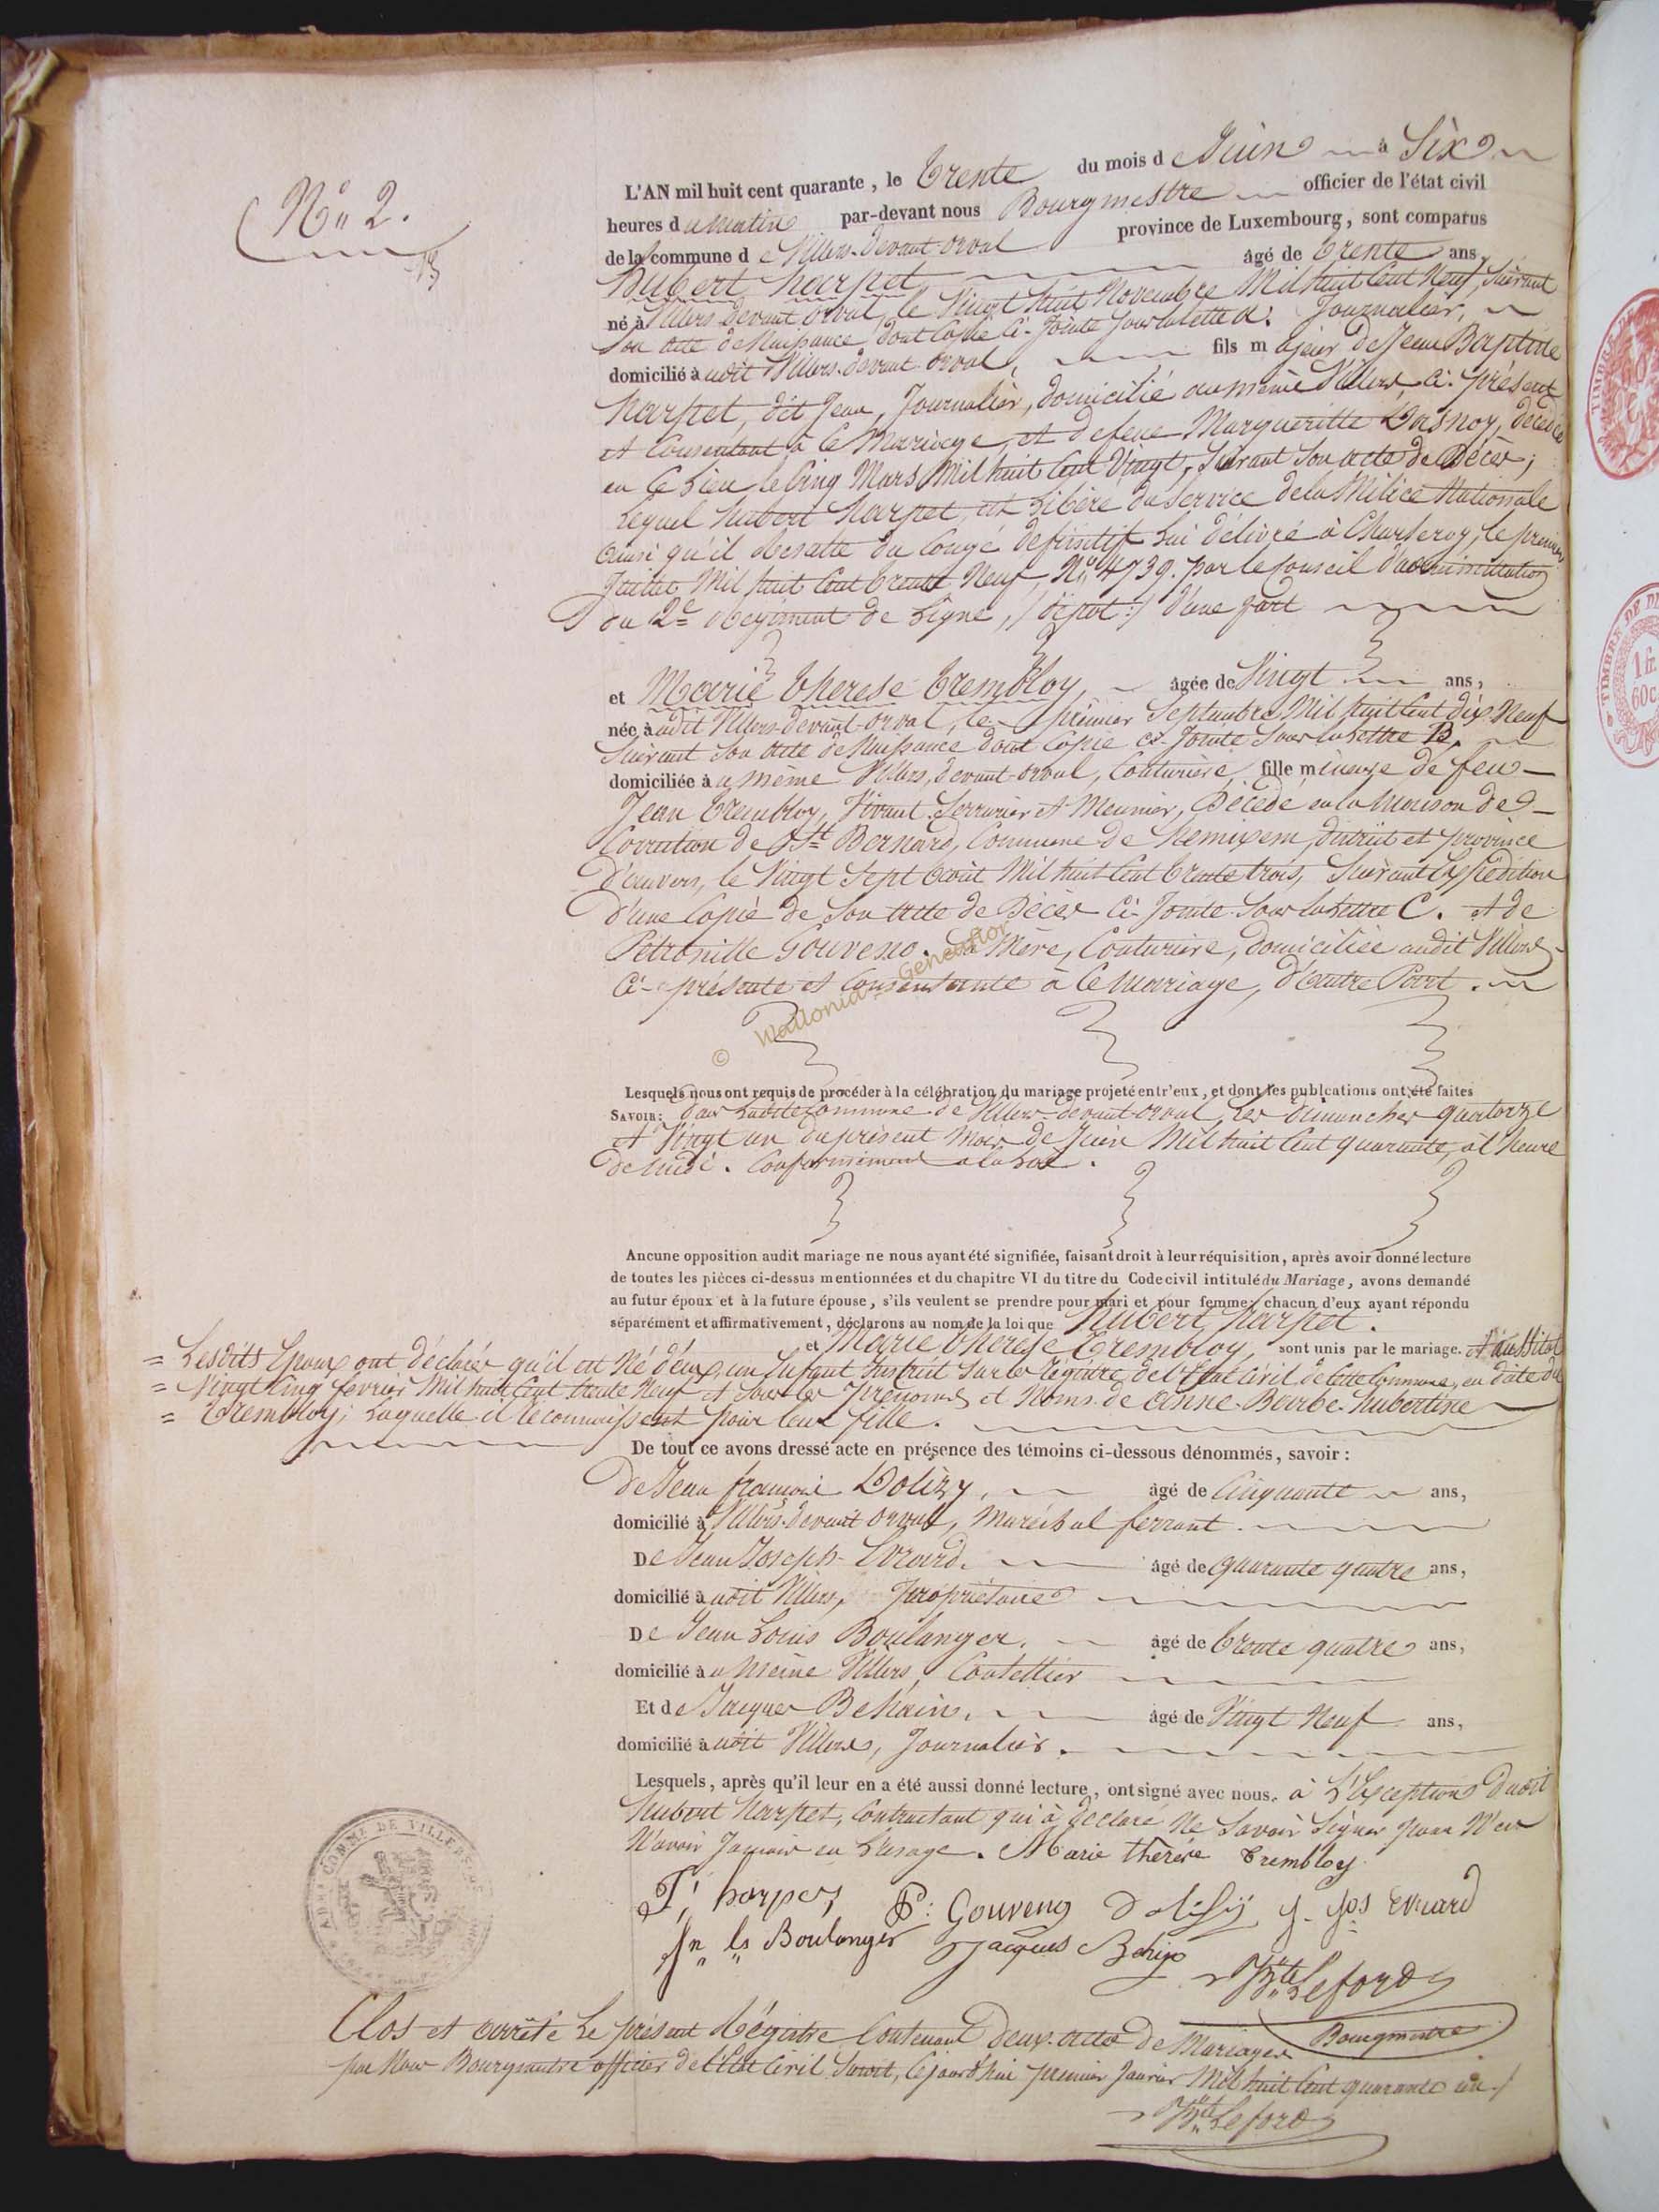 N° 2.
L'AN mil huit cent quarante, le Trente du mois de Juin à Six
heures du matin par-devant nous Bourgmestre officier de l'état civil
de la commune de Villers-devant-orval province de Luxembourg, sont comparus
Hubert harpet âgé de trente ans,
né à Villers devant orval, le Vingt huit Novembre Mil huit Cent Neuf, suivant
Son acte de Naissance dont Copie Ci-Jointe sous la lettre A. Journalier,
domicilié à udit Villers-devant-orval, fils majeur de Jean Baptiste
harpet, dit Jean, Journalier, domicilié au même Villers, ci-présent
et Consentant à Ce Mariage, et de feue Margueritte Dasnoy, décédée
en Ce Lieu le Cinq Mars Mil huit Cent Vingt, Suivant Son acte de Décès;
Lequel hubert harpet, est Libéré du Service de la Milice Nationale
ainsi qu'il Resulte du Congé définitif Lui délivré à Charleroy, le premier
Juillet Mil huit Cent trente Neuf, N° 4739. par le Conseil d'administration
du 2e Regiment de Ligne, /: dépot :/ d'une part
et Marie therese trembloy, âgée de Vingt ans,
née à udit Villers-devant-orval, le premier Septembre Mil huit Cent dix Neuf
Suivant Son Acte de Naissance dont Copie ci-Jointe Sous la lettre B,
domiciliée à u même Villers, devant-orval, Couturière, fille mineure de feu
Jean trembloy, Vivant Serrurier et Meunier, Décédé en la Maison de
Corrution de St Bernard, Commune de hemixem, district et province
d'anvers, le Vingt Sept août Mil huit Cent trente trois, Suivant Expédition
d'une Copie de Son Acte de Décès Ci-Jointe Sous la lettre C. et de
Pétronille Gouveno. Sa Mère, Couturière, domiciliée audit Villers
Ci-présente et Consentante à Ce Mariage, d'autre Part.
© Wallonia - Geneaflor
Lesquels nous ont requis de procéder à la célébration du mariage projeté entr'eux, et dont les publcations ont été faites
SAVOIR: dans Ladite Commune de Villers devant orval, Les dimanches quatorze
et Vingt un du présent mois de Juin Mil huit Cent quarante, à l'heure
de Midi. Conformément à la Loi.
Aucune opposition audit mariage ne nous ayant été signifiée, faisant droit à leur réquisition, après avoir donné lecture
de toutes les pièces ci-dessus mentionnées et du chapitre VI du titre du Code civil intitulé du Mariage, avons demandé
au futur époux et à la future épouse, s'ils veulent se prendre pour mari et pour femme: chacun d'eux ayant répondu
séparément et affirmativement, déclarons au nom de la loi que hubert harpet.
et Marie therese trembloy, sont unis par le mariage. et aussitot
= Lesdits Epoux ont déclarés qu'il est Né d'eux, un Enfant Inscrit Sur le Régistre de l'Etat Civil de Cette Commune, en date du
= Vingt Cinq fevrier Mil huit Cent trente Neuf et Sous les prénoms et Noms de Anne-Barbe-hubertine
= trembloy; Laquelle il Reconnaissent pour leur fille.
De tout ce avons dressé acte en présence des témoins ci-dessous dénommés, savoir:
De Jean francois Dolizy, âgé de Cinquante ans,
domicilié à Villers-devant orval, Maréchal ferrant
De Jean Joseph Evrard. âgé de quarante quatre ans,
domicilié à udit Villers, propriétaire
De Jean Louis Boulanger, âgé de trente quatre ans,
domicilié à u même Villers, Coutellier
Et de Jacques Behain, âgé de Vingt Neuf ans,
domicilié à udit Villers, Journalier.
Lesquels, après qu'il leur en a été aussi donné lecture, ont signé avec nous. à L'Exception dudit
hubert harpet, Contractant qui à déclaré Ne Savoir Signer pour N'en
N'avoir Jamais eu L'usage. Marie thérèse trembloy
J. harpet P: Gouveno Dolisy J. Jos Evrard
Jn Ls Boulanger Jacques Behin
Bte Leford
Bourgmestre
Clos et arrêté Le présent Régistre Contenant Deux Actes de Mariages
par Nous Bourgmestre officier de l'Etat Civil Susdit, Cejourd'hui premier Janvier Mil huit Cent quarante un./
Bte Leford